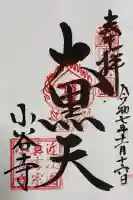 奉拝
令和七年十一月十六日
大黒天
小谷寺